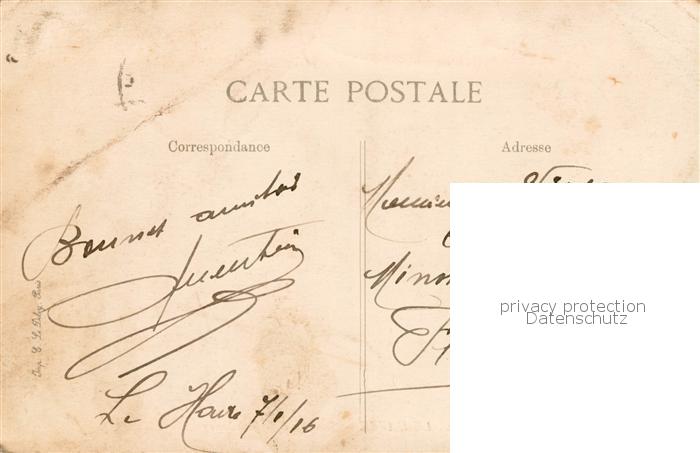 CARTE POSTALE
Correspondance
Adresse
Bonnes amitiés
Quentin
Le Havre 7/1/16
Imp. E. Le Deley, Paris
Monsieur
privacy protection
Datenschutz